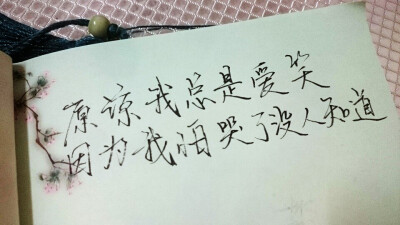 原谅我总是爱笑
因为我怕哭了没人知道